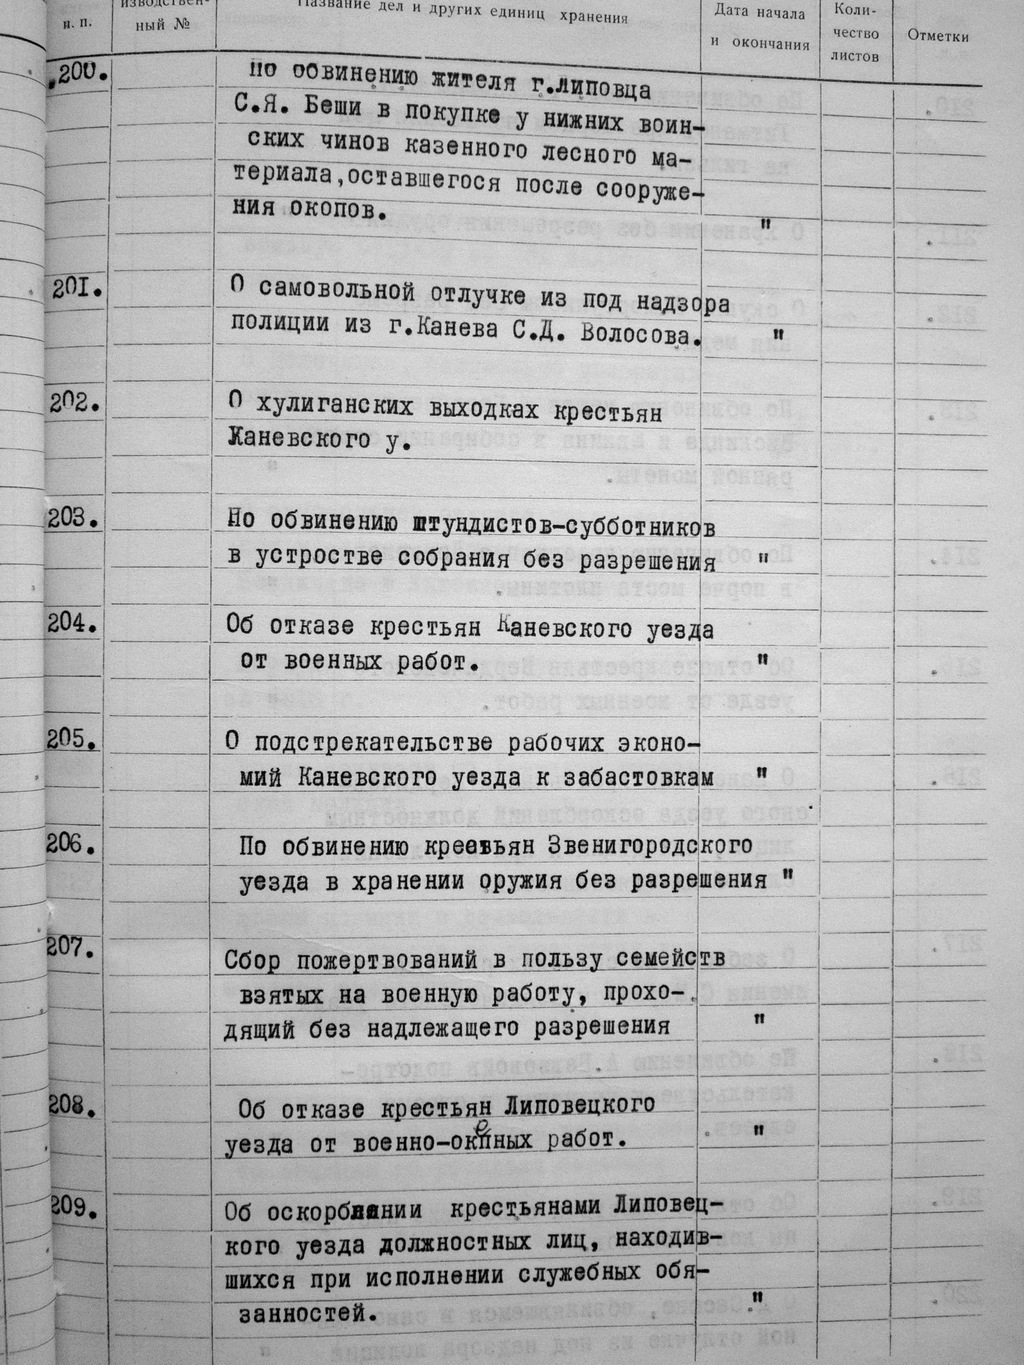 н. п.
изводствен-
ный №
Название дел и других единиц хранения
Дата начала
и окончания
Коли-
чество
листов
Отметки
200. По обвинению жителя г.Липовца
С.Я. Беши в покупке у нижних воин-
ских чинов казенного лесного ма-
териала,оставшегося после сооруже-
ния окопов. "
201. О самовольной отлучке из под надзора
полиции из г.Канева С.Д. Волосова. "
202. О хулиганских выходках крестьян
Каневского у.
203. По обвинению штундистов-субботников
в устростве собрания без разрешения "
204. Об отказе крестьян Каневского уезда
от военных работ. "
205. О подстрекательстве рабочих эконо-
мий Каневского уезда к забастовкам "
206. По обвинению крестьян Звенигородского
уезда в хранении оружия без разрешения "
207. Сбор пожертвований в пользу семейств
взятых на военную работу, прохо-
дящий без надлежащего разрешения "
208. Об отказе крестьян Липовецкого
уезда от военно-окопных работ. "
209. Об оскорблении крестьянами Липовец-
кого уезда должностных лиц, находив-
шихся при исполнении служебных обя-
занностей. "